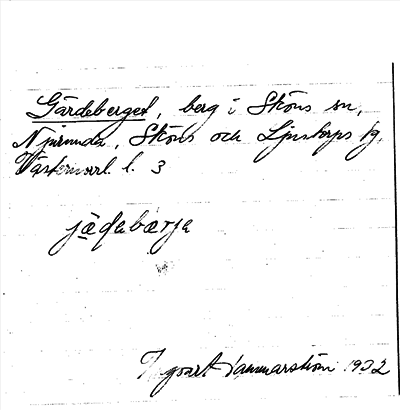 Gärdeberget, berg i Sköns sn,
Njurunda, Sköns och Ljustorps tg,
Västernorrl. l. 3
jädabärje
Ingvart Hammarström 1932